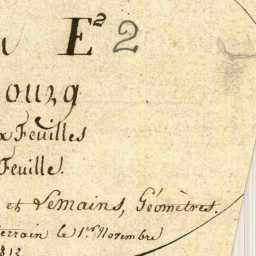 E² 2
ourg
x Feuilles
Feuille.
et Lemains, Géomètres.
errain le 1er Novembre
1813